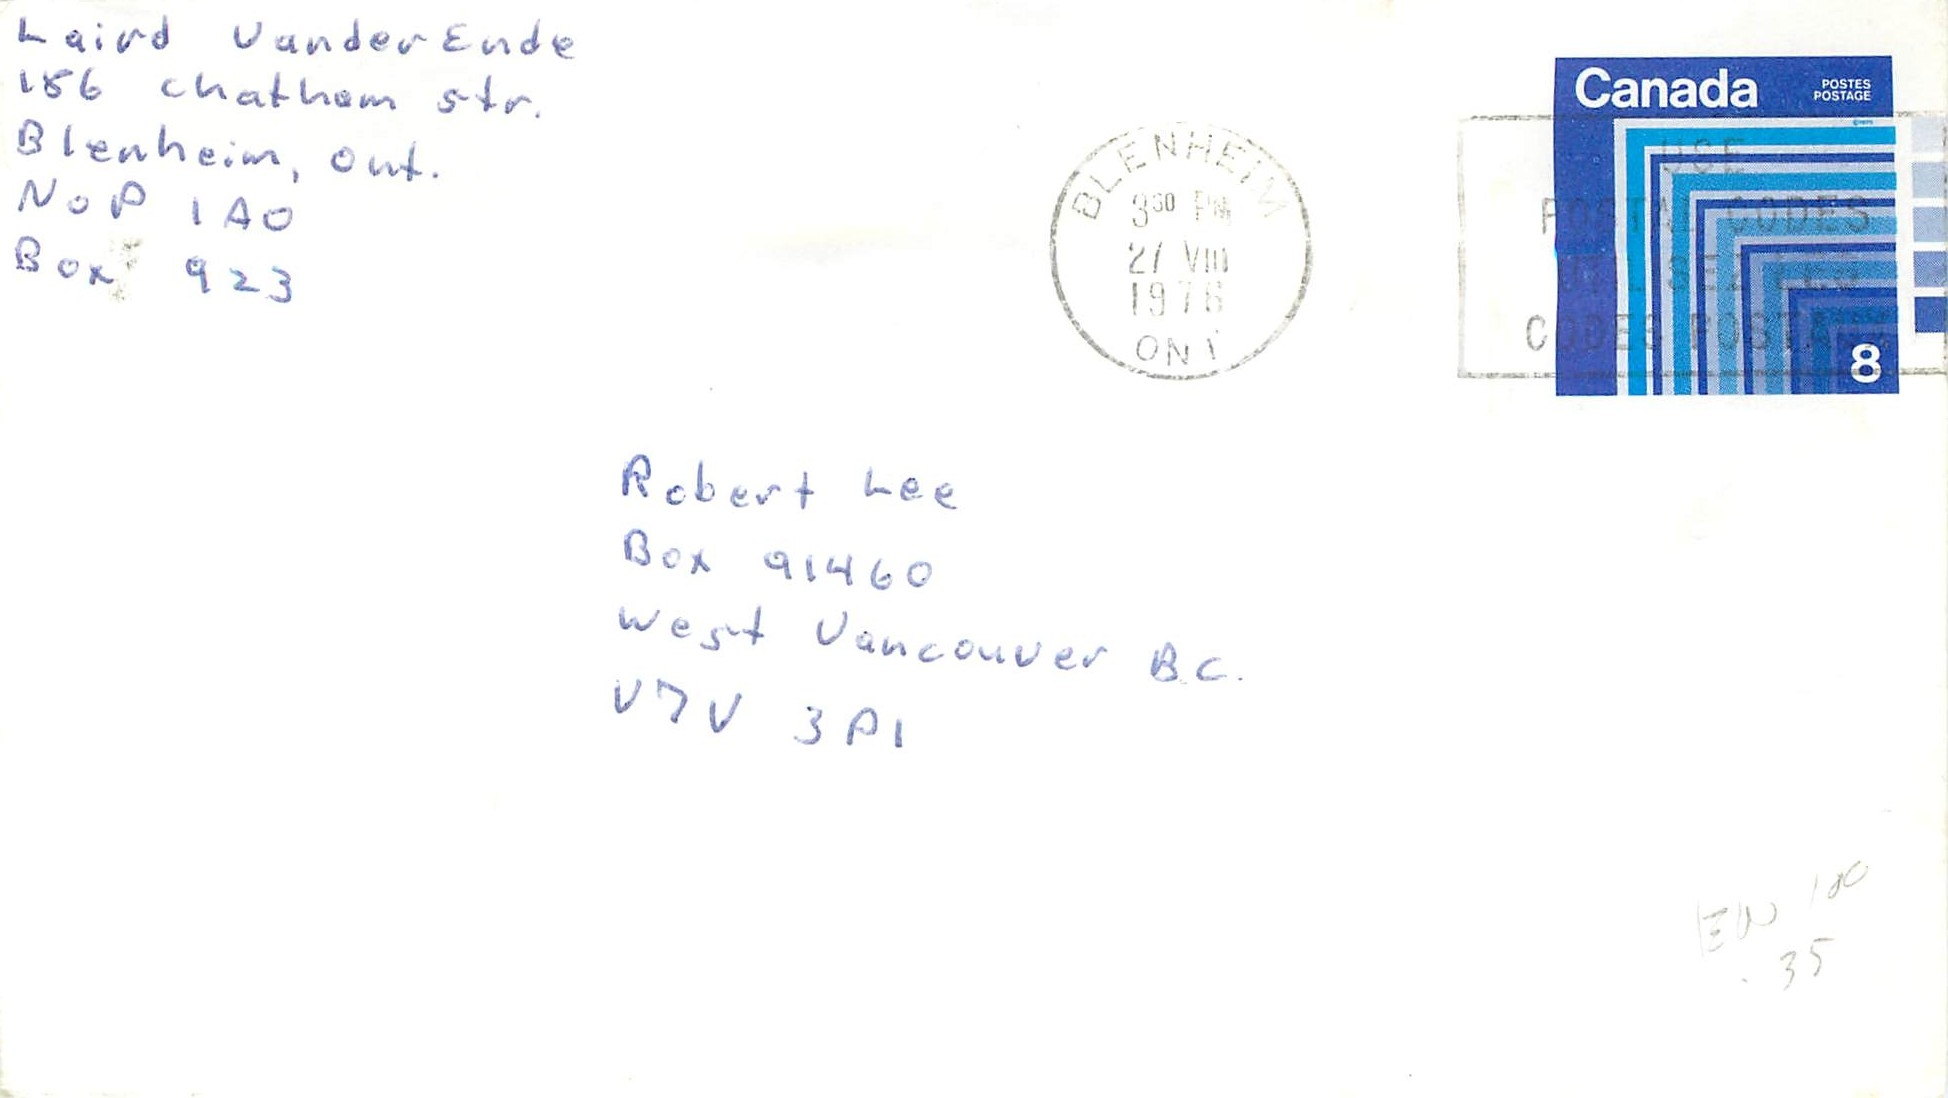 Laird VanderEnde
156 Chatham str.
Blenheim, Ont.
NoP 1A0
Box 923
Canada
POSTES
POSTAGE
8
BLENHEIM
3 30 PM
27 VIII
1976
ONT
USE
POSTAL CODES
UTILISEZ LES
CODES POSTAUX
Robert Lee
Box 91460
West Vancouver B.C.
V7V 3P1
EN 100
.35